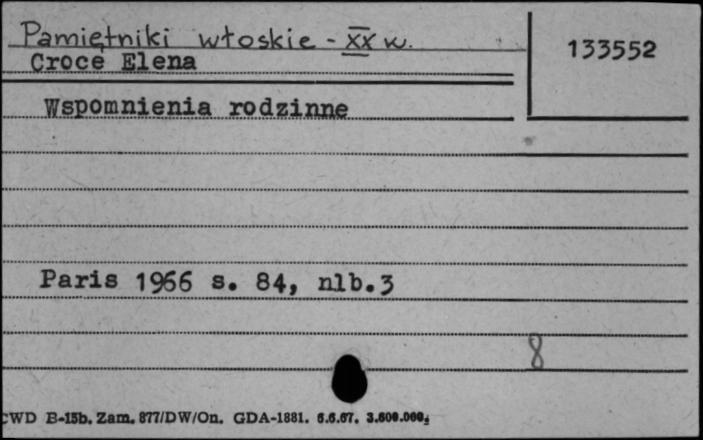 Pamiętniki włoskie - XX w.
133552
Croce Elena
Wspomnienia rodzinne
Paris 1966 s. 84, nlb.3
8
CWD B-15b. Zam. 877/DW/On. GDA-1881. 6.6.67. 3.600.000.